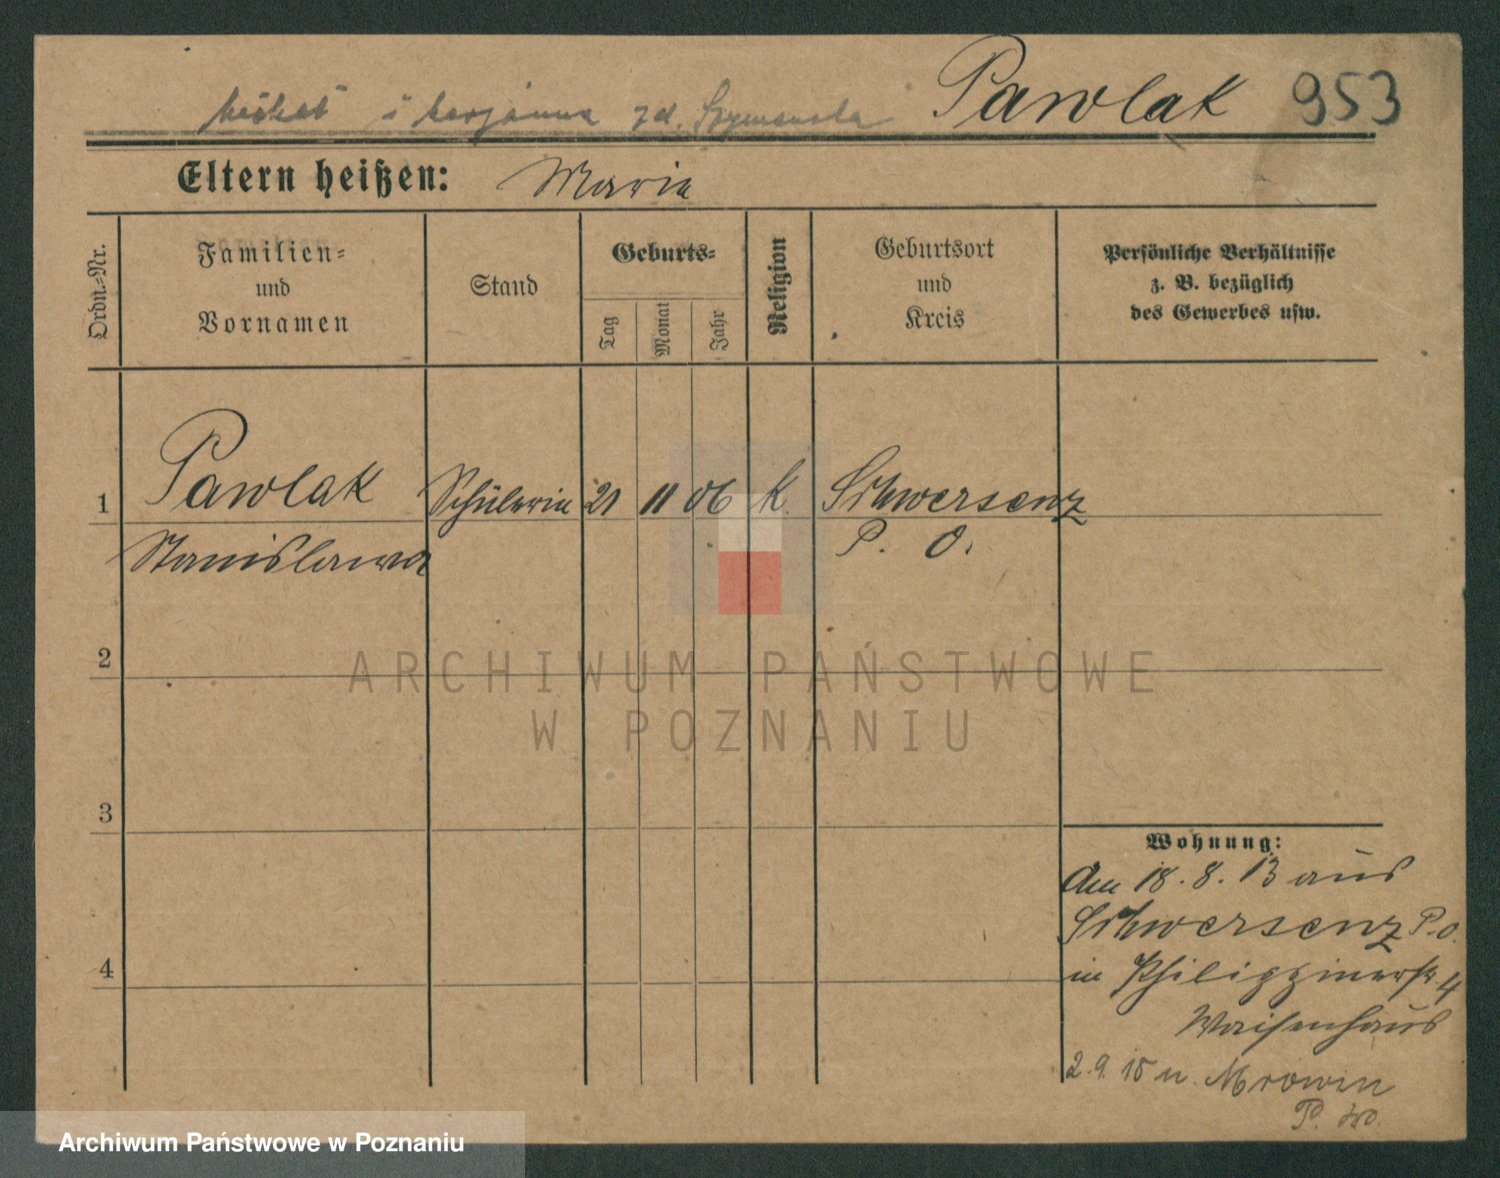 i Marjanna zd. Szymańska Pawlak 953
Eltern heißen: Marie
Ordn.-Nr.
Familien-
und
Vornamen
Stand
Geburts-
Tag
Monat
Jahr
Religion
Geburtsort
und
Kreis
Persönliche Verhältnisse
z. B. bezüglich
des Gewerbes usw.
1 Pawlak Schülerin 21 11 06 k. Schwersenz
Stanislawa P. O.
2
3
4
Wohnung:
Am 18. 8. 13 aus
Schwersenz P. O.
in Philippinerstr 4
Waisenhaus
2. 9. 15 n. Mrowin
P.
ARCHIWUM PAŃSTWOWE
W POZNANIU
Archiwum Państwowe w Poznaniu